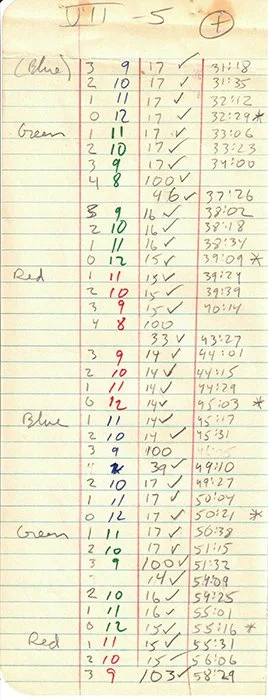 VII - 5 +
(Blue) 3 9 17 ✓ 31:18
2 10 17 ✓ 31:35
1 11 17 ✓ 32:12
0 12 17 ✓ 32:29 *
Green 1 11 17 ✓ 33:06
2 10 17 ✓ 33:23
3 9 17 ✓ 34:00
4 8 100 ✓
46 ✓ 37:26
3 9 16 ✓ 38:02
2 10 16 ✓ 38:18
1 11 16 ✓ 38:34
0 12 15 ✓ 39:09 *
Red 1 11 15 ✓ 39:24
2 10 15 ✓ 39:39
3 9 15 ✓ 40:14
4 8 100
33 ✓ 43:27
3 9 14 ✓ 44:01
2 10 14 ✓ 44:15
1 11 14 ✓ 44:29
0 12 14 ✓ 45:03 *
Blue 1 11 14 ✓ 45:17
2 10 14 ✓ 45:31
3 9 100
39 ✓ 49:10
2 10 17 ✓ 49:27
1 11 17 ✓ 50:04
0 12 17 ✓ 50:21 *
Green 1 11 17 ✓ 50:38
2 10 17 ✓ 51:15
3 9 100 ✓ 51:32
14 ✓ 54:09
2 10 16 ✓ 54:25
1 11 16 ✓ 55:01
0 12 15 ✓ 55:16 *
Red 1 11 15 ✓ 55:31
2 10 15 ✓ 56:06
3 9 103 ✓ 58:29